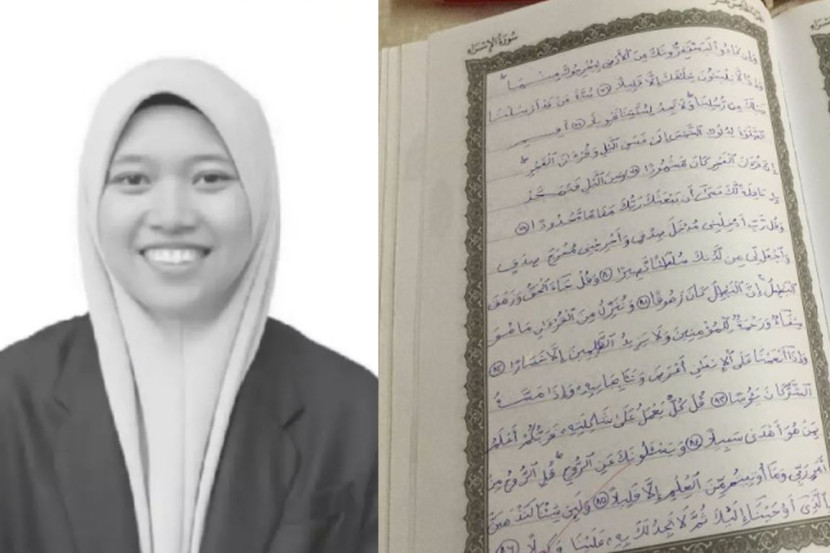 سُورَةُ الإِسْرَاءِ
وَإِن كَادُوا۟ لَيَسْتَفِزُّونَكَ مِنَ ٱلْأَرْضِ لِيُخْرِجُوكَ مِنْهَا ۖ
وَإِذًا لَّا يَلْبَثُونَ خِلَٰفَكَ إِلَّا قَلِيلًا ٧٦ سُنَّةَ مَن قَدْ أَرْسَلْنَا
قَبْلَكَ مِن رُّسُلِنَا ۖ وَلَا تَجِدُ لِسُنَّتِنَا تَحْوِيلًا ٧٧ أَقِمِ
ٱلصَّلَوٰةَ لِدُلُوكِ ٱلشَّمْسِ إِلَىٰ غَسَقِ ٱلَّيْلِ وَقُرْءَانَ ٱلْفَجْرِ ۖ
إِنَّ قُرْءَانَ ٱلْفَجْرِ كَانَ مَشْهُودًا ٧٨ وَمِنَ ٱلَّيْلِ فَتَهَجَّدْ
بِهِۦ نَافِلَةً لَّكَ عَسَىٰٓ أَن يَبْعَثَكَ رَبُّكَ مَقَامًا مَّحْمُودًا ٧٩
وَقُل رَّبِّ أَدْخِلْنِى مُدْخَلَ صِدْقٍ وَأَخْرِجْنِى مُخْرَجَ صِدْقٍ
وَٱجْعَل لِّى مِن لَّدُنكَ سُلْطَٰنًا نَّصِيرًا ٨٠ وَقُلْ جَآءَ ٱلْحَقُّ وَزَهَقَ
ٱلْبَٰطِلُ ۚ إِنَّ ٱلْبَٰطِلَ كَانَ زَهُوقًا ٨١ وَنُنَزِّلُ مِنَ ٱلْقُرْءَانِ مَا هُوَ
شِفَآءٌ وَرَحْمَةٌ لِّلْمُؤْمِنِينَ ۙ وَلَا يَزِيدُ ٱلظَّٰلِمِينَ إِلَّا خَسَارًا ٨٢
وَإِذَآ أَنْعَمْنَا عَلَى ٱلْإِنسَٰنِ أَعْرَضَ وَنَـَٔا بِجَانِبِهِۦ ۖ وَإِذَا مَسَّهُ
ٱلشَّرُّ كَانَ يَـُٔوسًا ٨٣ قُلْ كُلٌّ يَعْمَلُ عَلَىٰ شَاكِلَتِهِۦ فَرَبُّكُمْ أَعْلَمُ
بِمَنْ هُوَ أَهْدَىٰ سَبِيلًا ٨٤ وَيَسْـَٔلُونَكَ عَنِ ٱلرُّوحِ ۖ قُلِ ٱلرُّوحُ مِنْ
أَمْرِ رَبِّى وَمَآ أُوتِيتُم مِّنَ ٱلْعِلْمِ إِلَّا قَلِيلًا ٨٥ وَلَئِن شِئْنَا لَنَذْهَبَنَّ
بِٱلَّذِىٓ أَوْحَيْنَآ إِلَيْكَ ثُمَّ لَا تَجِدُ لَكَ بِهِۦ عَلَيْنَا وَكِيلًا ٨٦